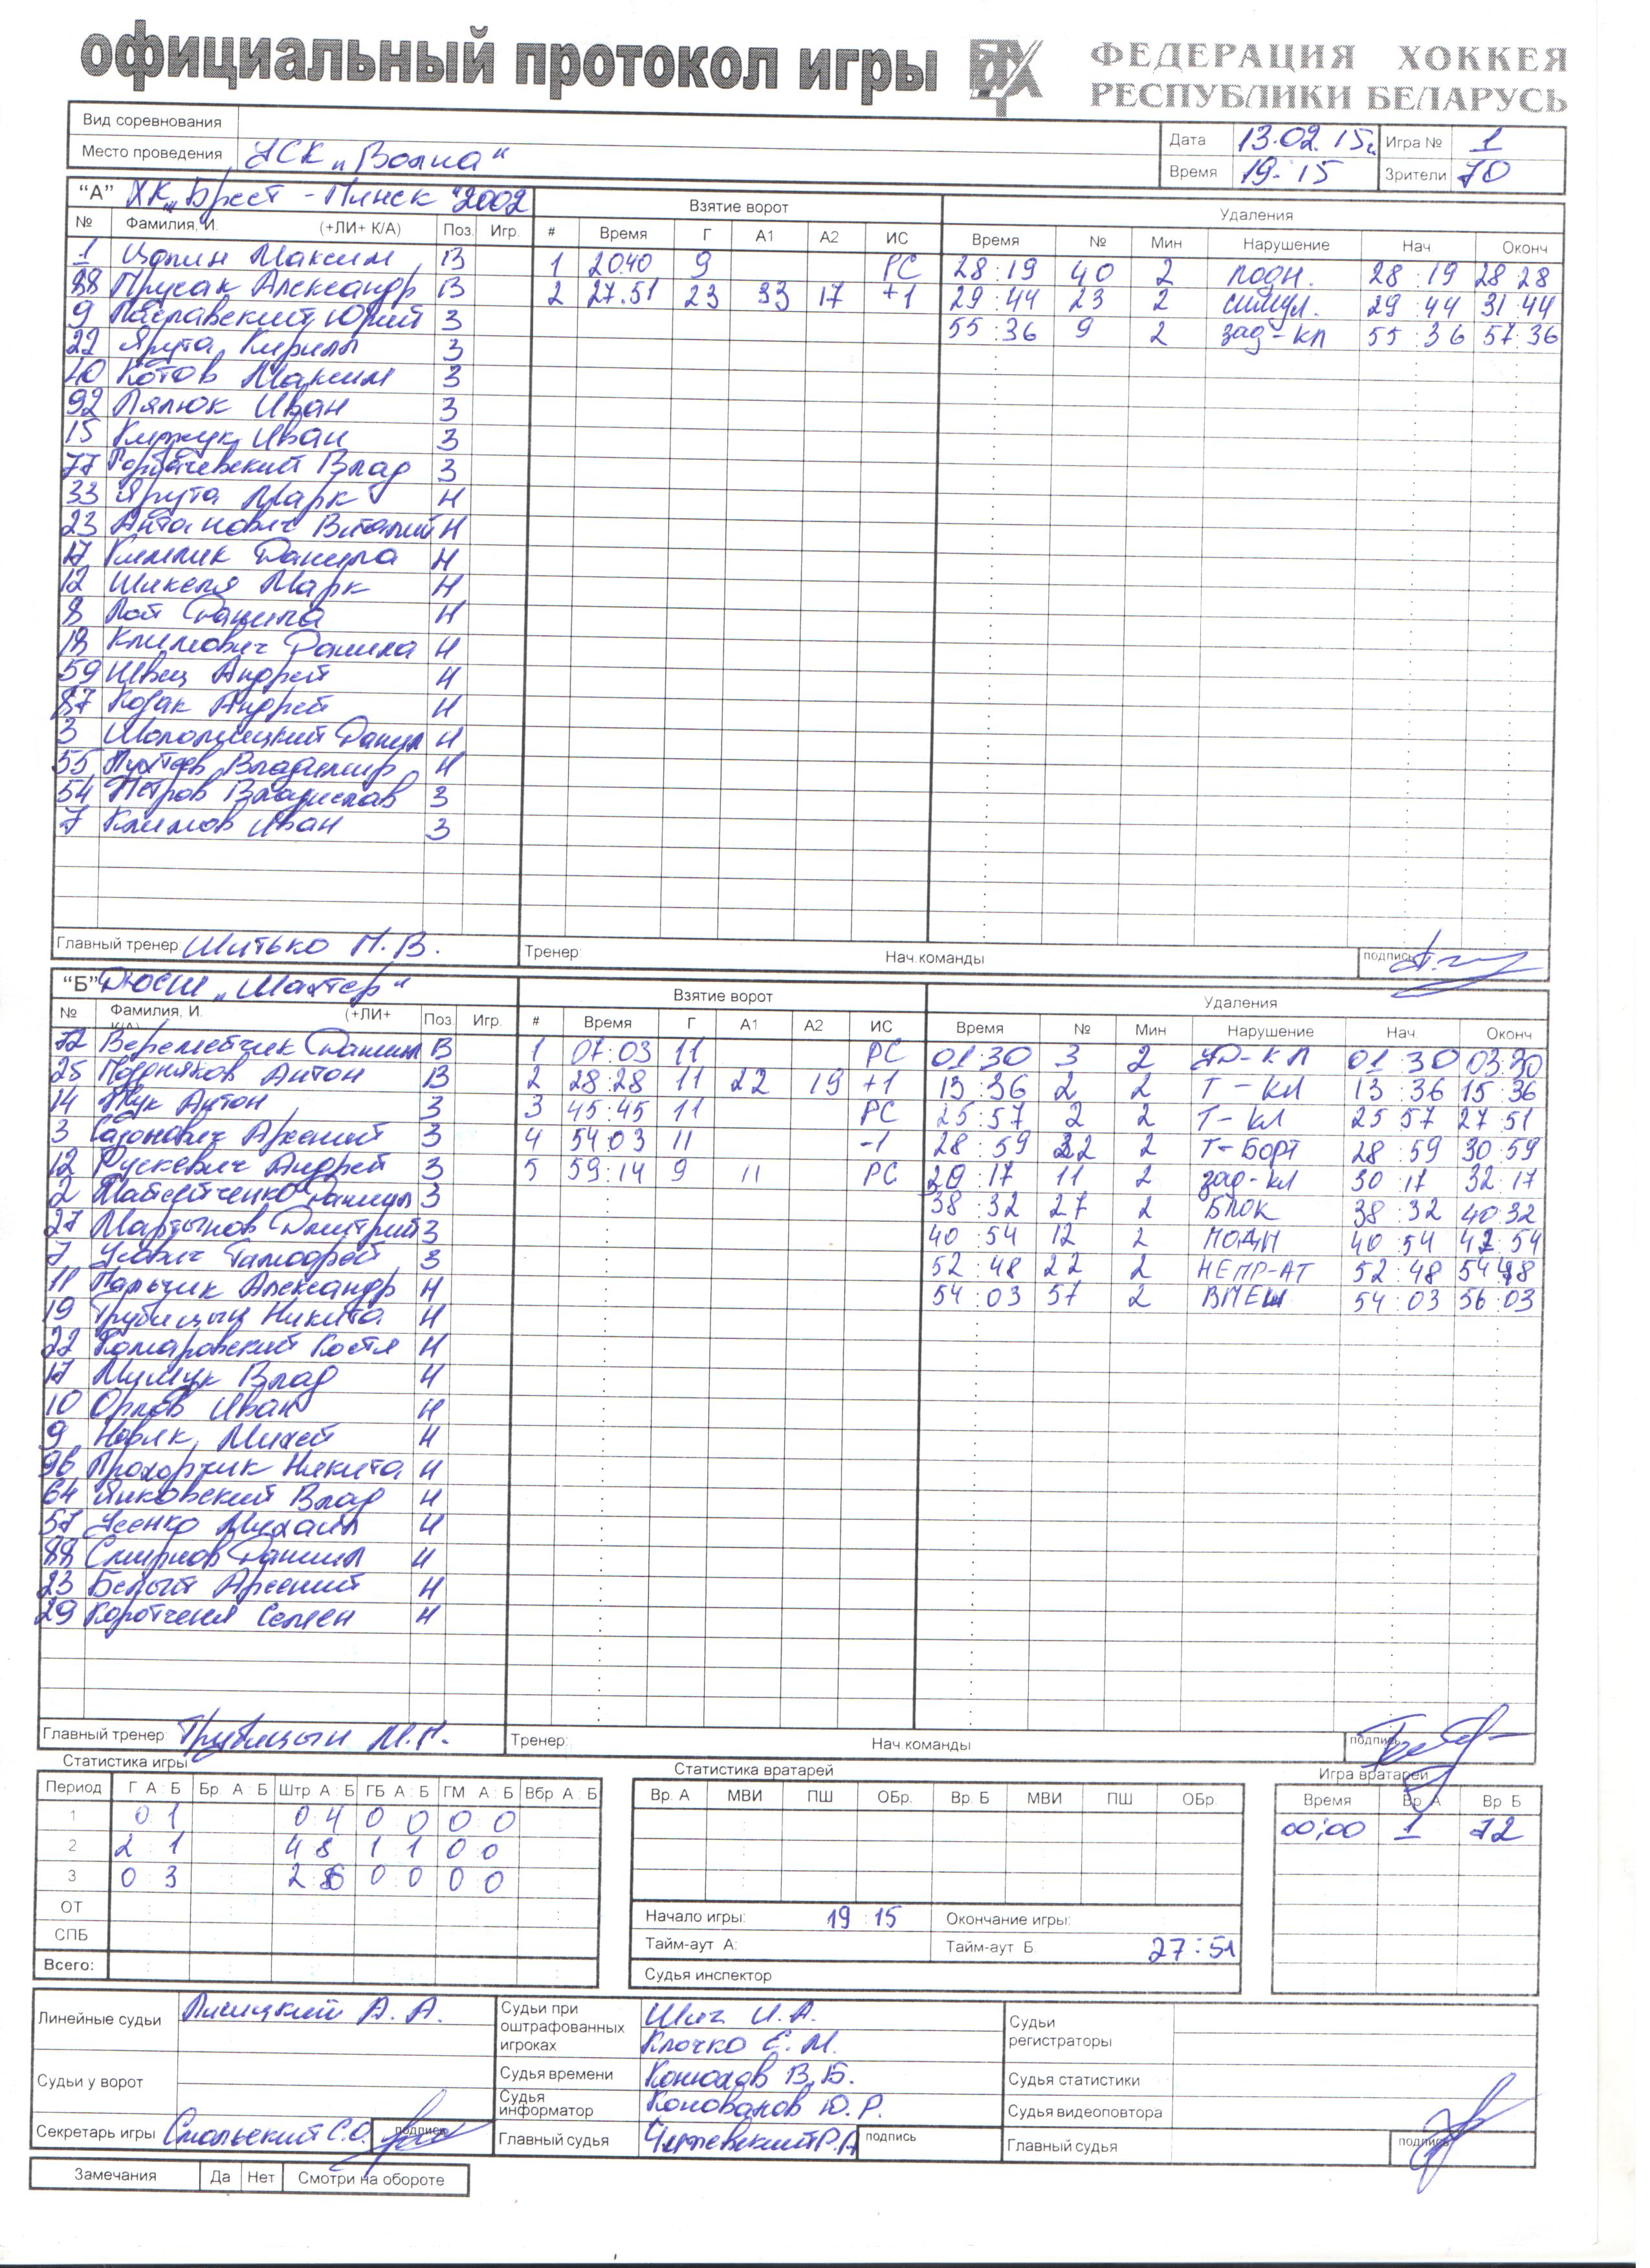 официальный протокол игры ФЕДЕРАЦИЯ ХОККЕЯ РЕСПУБЛИКИ БЕЛАРУСЬ
Вид соревнования
Место проведения УСК „Волна“
Дата 13.02.15г. Игра № 1
Время 19:15 Зрители 70
“А” ХК „Брест - Пинск “2002 Взятие ворот Удаления
№ Фамилия, И. (+ЛИ+ К/А) Поз. Игр. # Время Г А1 А2 ИС Время № Мин Нарушение Нач Оконч
1 Максим В 1 20 40 9 РС 28:19 40 2 подн. 28:19 28 28
88 Прусак Александр В 2 27.51 23 33 17 +1 29:44 23 2 симул. 29:44 31:44
9 Юрий З 55:36 9 2 зад-кл 55:36 57:36
22 Ярута Кирилл З
Котов Максим З
92 Пялюк Иван З
15 Иван З
77 Горбачевский Влад З
33 Ярута Марк Н
23 Антанович Виталий Н
17 Данила Н
12 Шикеля Марк Н
8 Лот Данила Н
Климович Данила Н
59 Швец Андрей Н
87 Козак Андрей Н
3 Данил Н
55 Владимир Н
54 Петров Владислав З
7 Климов Иван З
Главный тренер: Шитько Н.В. Тренер: Нач.команды подпись
“Б” ДЮСШ „Шахтер“ Взятие ворот Удаления
№ Фамилия, И. (+ЛИ+ К/А) Поз. Игр. # Время Г А1 А2 ИС Время № Мин Нарушение Нач. Оконч
72 Веремейчик Даниил В 1 07:03 11 РС 01:30 3 2 УД-КЛ 01:30 03:30
25 Поздняков Антон В 2 28:28 11 22 19 +1 13:36 2 2 Т-КЛ 13:36 15:36
14 Жук Антон З 3 45:45 11 РС 25:57 2 2 Т-КЛ 25 57 27:51
3 Сазонович Арсений З 4 54 03 11 -1 28:59 22 2 Т-БОРТ 28:59 30:59
12 Рускевич Андрей З 5 59:14 9 11 РС 30:17 11 2 зад-кл 30 17 32:17
2 Даниил З 38:32 27 2 БЛОК 38:32 40:32
27 Мартынов Дмитрий З 40:54 12 2 ПОДН 40:54 42:54
7 Усович Тимофей З 52:48 22 2 НЕПР-АТ 52:48 54 48
11 Пальчик Александр Н 54:03 57 2 ВМЕШ 54:03 56:03
19 Трубицын Никита Н
22 Комаровский Костя Н
17 Влад Н
10 Орлов Иван Н
9 Новик Михей Н
96 Прохорчик Никита Н
64 Янковский Влад Н
57 Усенко Михаил Н
88 Смирнов Даниил Н
23 Белый Арсений Н
29 Коротченя Семен Н
Главный тренер: Трубицын М.Н. Тренер: Нач.команды подпись
Статистика игры Статистика вратарей Игра вратарей
Период Г А:Б Бр А:Б Штр А:Б ГБ А:Б ГМ А:Б Вбр А:Б Вр. А МВИ ПШ ОБр. Вр. Б МВИ ПШ ОБр. Время Вр. А Вр. Б
1 0 1 0 4 0 0 0 0 00:00 1 72
2 2 1 4 8 1 1 0 0
3 0 3 2 6 0 0 0 0
ОТ
СПБ
Всего:
Начало игры: 19 15 Окончание игры:
Тайм-аут А: Тайм-аут Б 27:51
Судья инспектор
Линейные судьи Лисицкий А.А. Судьи при оштрафованных игроках Шич И.А. Клочко Е.М. Судьи регистраторы
Судьи у ворот Судья времени Конюхов В.Б. Судья статистики
Судья информатор Коновалов Ю.Р. Судья видеоповтора
Секретарь игры Смольский С.О. подпись Главный судья подпись Главный судья подпись
Замечания Да Нет Смотри на обороте